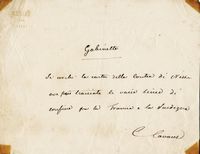 Gabinetto
Si mandi la carta della Contea di Nizza
ove furono tracciate le varie linee di
confine fra la Francia e la Sardegna
C. Cavour